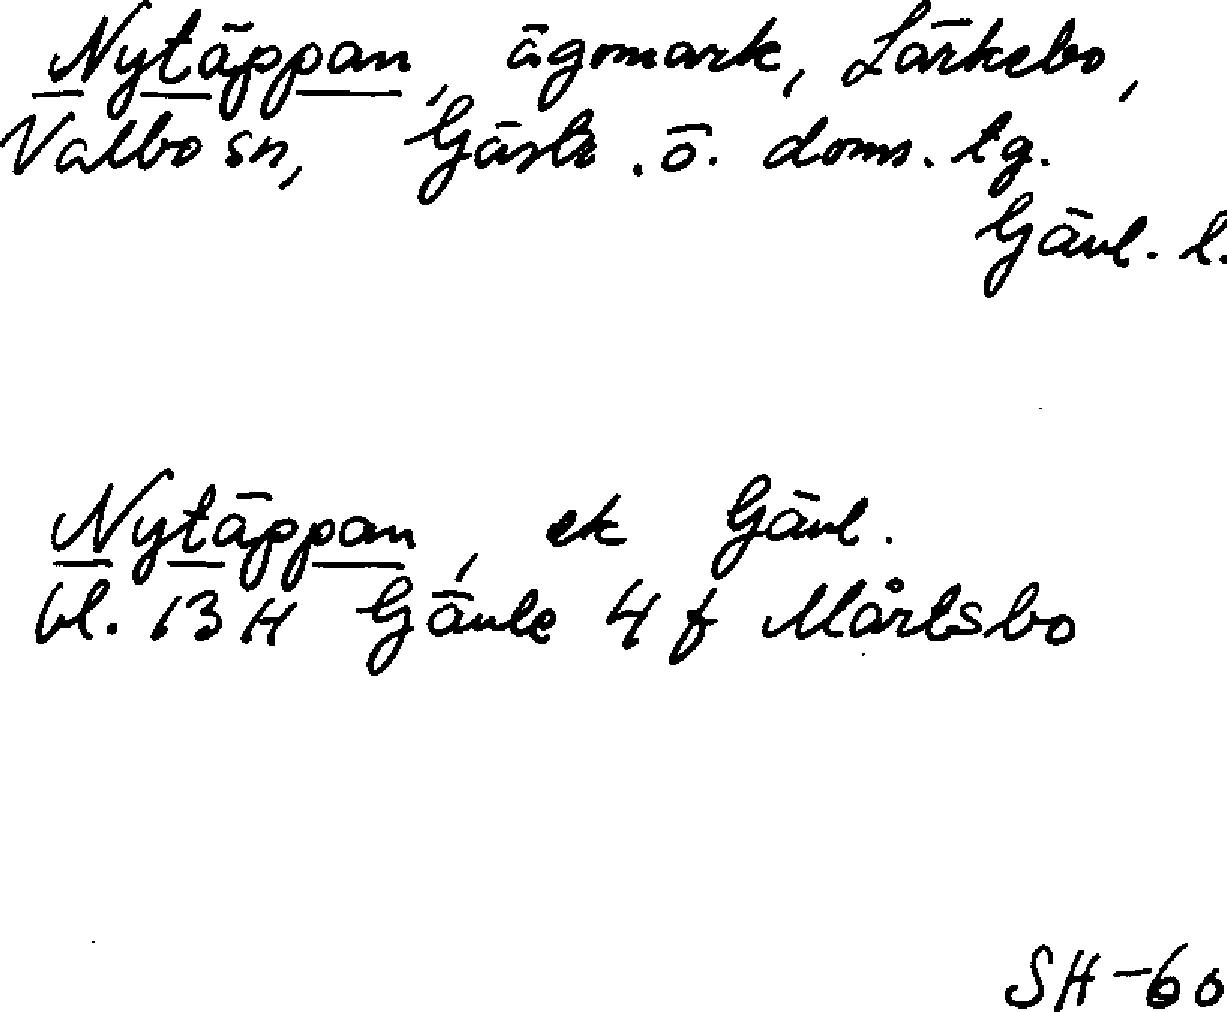 Nytäppan, ägomark, Lärkebo,
Valbo sn, Gästr. ö. doms. tg.
Gävl. l.
Nytäppan, ek Gävl.
bl. 13 H Gävle 4 f Mårtsbo
SH-60